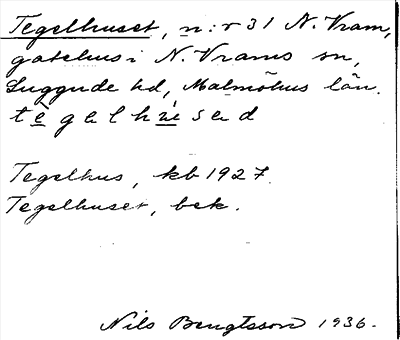 Tegelhuset, n:r 31 N. Vram,
gatehus i N. Vrams sn,
Luggude hd, Malmöhus län.
tègəlhúsəd
Tegelhus, kb 1927.
Tegelhuset, bek.
Nils Bengtsson 1936.